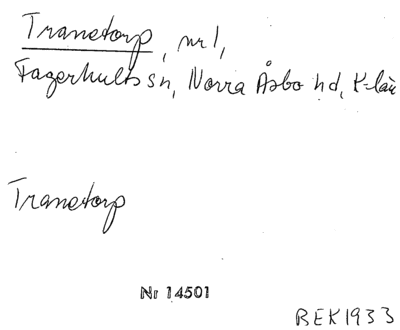 Tranetorp, nr 1,
Fagerhults sn, Norra Åsbo hd, K-län
Tranetorp
Nr 14501
BEK 1933